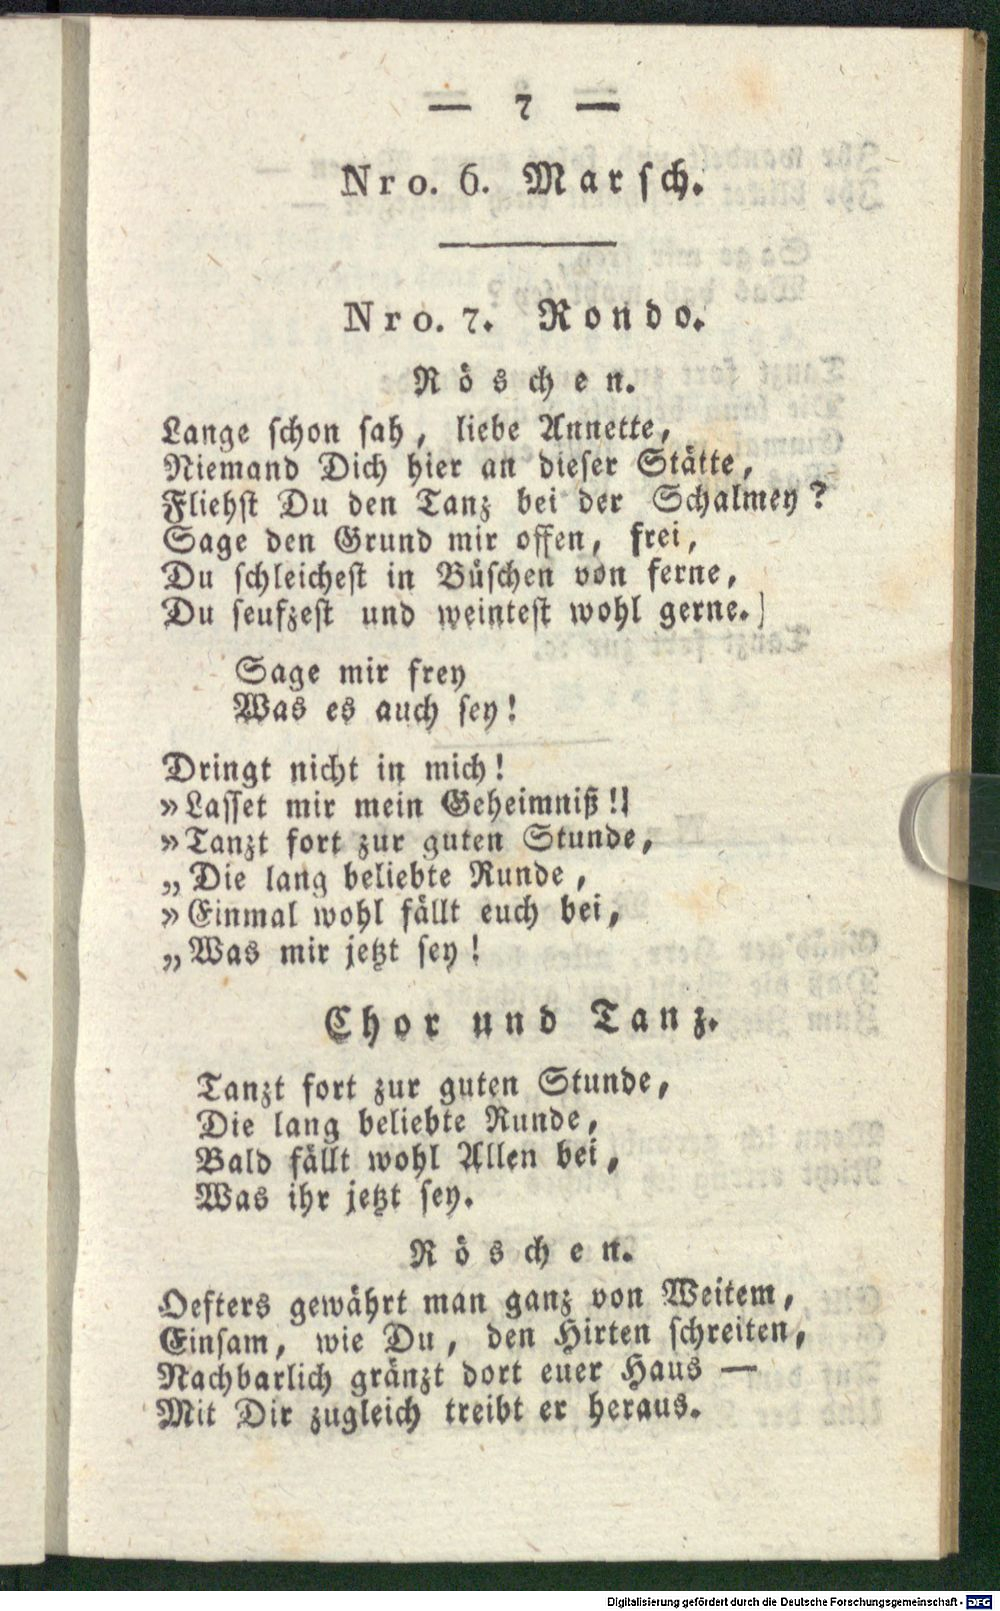 — 7 —
Nro. 6. Marsch.
Nro. 7. Rondo.
Röschen.
Lange schon sah, liebe Annette,
Niemand Dich hier an dieser Stätte,
Fliehst Du den Tanz bei der Schalmey?
Sage den Grund mir offen, frei,
Du schleichest in Büschen von ferne,
Du seufzest und weintest wohl gerne.
Sage mir frey
Was es auch sey!
Dringt nicht in mich!
»Lasset mir mein Geheimniß!!
»Tanzt fort zur guten Stunde,
„Die lang beliebte Runde,
»Einmal wohl fällt euch bei,
„Was mir jetzt sey!
Chor und Tanz.
Tanzt fort zur guten Stunde,
Die lang beliebte Runde,
Bald fällt wohl Allen bei,
Was ihr jetzt sey.
Röschen.
Oefters gewährt man ganz von Weitem,
Einsam, wie Du, den Hirten schreiten,
Nachbarlich gränzt dort euer Haus —
Mit Dir zugleich treibt er heraus.
Digitalisierung gefördert durch die Deutsche Forschungsgemeinschaft - DFG